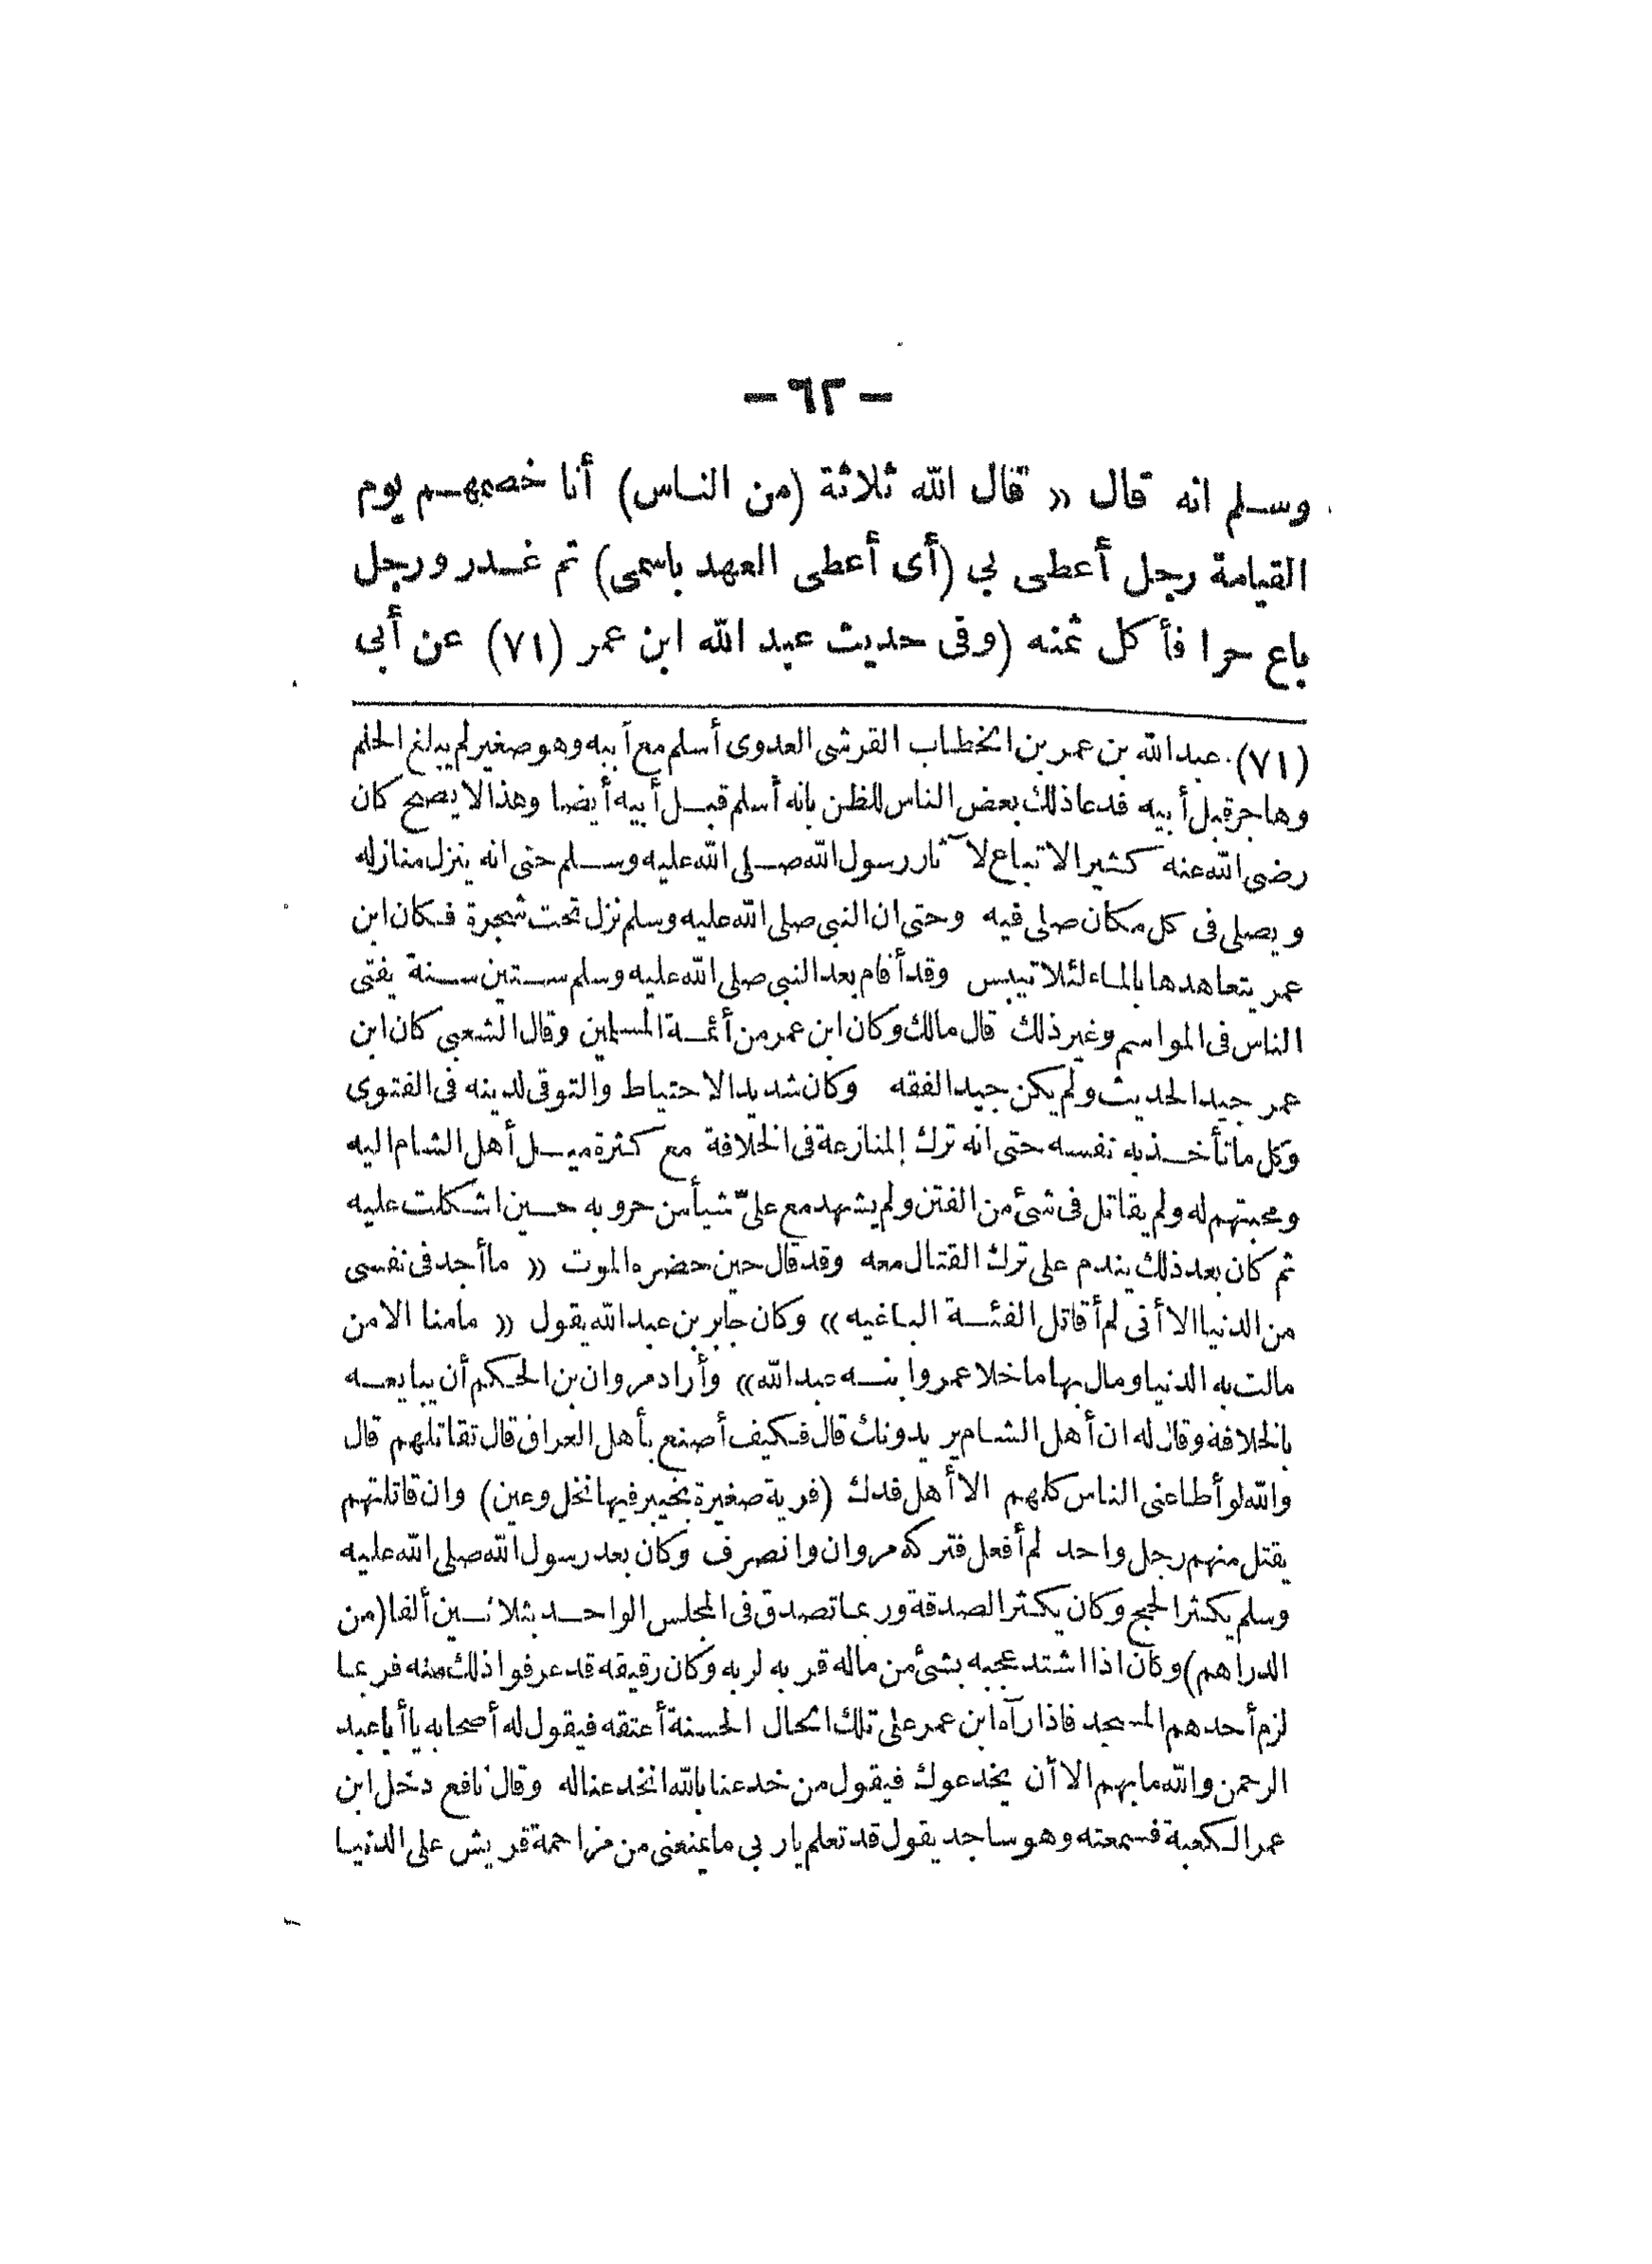 - ٦٢ -
وسلم انه قال « قال الله ثلاثة (من الناس) أنا خصمهم يوم
القيامة رجل أعطى بي (أى أعطى العهد باسمى) ثم غدر ورجل
باع حرا فأكل ثمنه (وفى حديث عبد الله ابن عمر (٧١) عن أبى
(٧١) عبدالله بن عمر بن الخطاب القرشى العدوى أسلم مع أبيه وهو صغير لم يبلغ الحلم
وهاجر قبل أبيه فدعا ذلك بعض الناس للظن بانه أسلم قبل أبيه أيضا وهذا لا يصح كان
رضى الله عنه كثير الاتباع لآثار رسول الله صلى الله عليه وسلم حتى انه ينزل منازله
ويصلى فى كل مكان صلى فيه وحتى ان النبى صلى الله عليه وسلم نزل تحت شجرة فكان ابن
عمر يتعاهدها بالماء لئلا تيبس وقد أقام بعد النبى صلى الله عليه وسلم ستين سنة يفتى
الناس فى المواسم وغير ذلك قال مالك وكان ابن عمر من أئمة المسلمين وقال الشعبى كان ابن
عمر جيد الحديث ولم يكن جيد الفقه وكان شديد الاحتياط والتوقى لدينه فى الفتوى
وكل ما تأخذ به نفسه حتى انه ترك المنازعة فى الخلافة مع كثرة ميل أهل الشام اليه
ومحبتهم له ولم يقاتل فى شئ من الفتن ولم يشهد مع علىّ شيأ من حروبه حين اشكلت عليه
ثم كان بعد ذلك يندم على ترك القتال معه وقد قال حين حضره الموت « ما أجد فى نفسى
من الدنيا الا أنى لم أقاتل الفئة الباغيه » وكان جابر بن عبد الله يقول « ما منا الا من
مالت به الدنيا ومال بها ما خلا عمر وابنه عبد الله » وأراد مروان بن الحكم أن يبايعه
بالخلافة وقال له ان أهل الشام يريدونك قال فكيف أصنع بأهل العراق قال تقاتلهم قال
والله لو أطاعنى الناس كلهم الا أهل فدك (قرية صغيرة بخيبر فيها نخل وعين) وان قاتلتهم
يقتل منهم رجل واحد لم أفعل فتركه مروان وانصرف وكان بعد رسول الله صلى الله عليه
وسلم يكثر الحج وكان يكثر الصدقة وربما تصدق فى المجلس الواحد بثلاثين ألفا (من
الدراهم) وكان اذا اشتد عجبه بشئ من ماله قربه لربه وكان رقيقه قد عرفوا ذلك منه فربما
لزم أحدهم المسجد فاذا رآه ابن عمر على تلك الحال الحسنة أعتقه فيقول له أصحابه يا أبا عبد
الرحمن والله ما بهم الا أن يخدعوك فيقول من خدعنا بالله انخدعنا له وقال نافع دخل ابن
عمر الكعبة فسمعته وهو ساجد يقول قد تعلم يا ربى ما يمنعنى من مزاحمة قريش على الدنيا